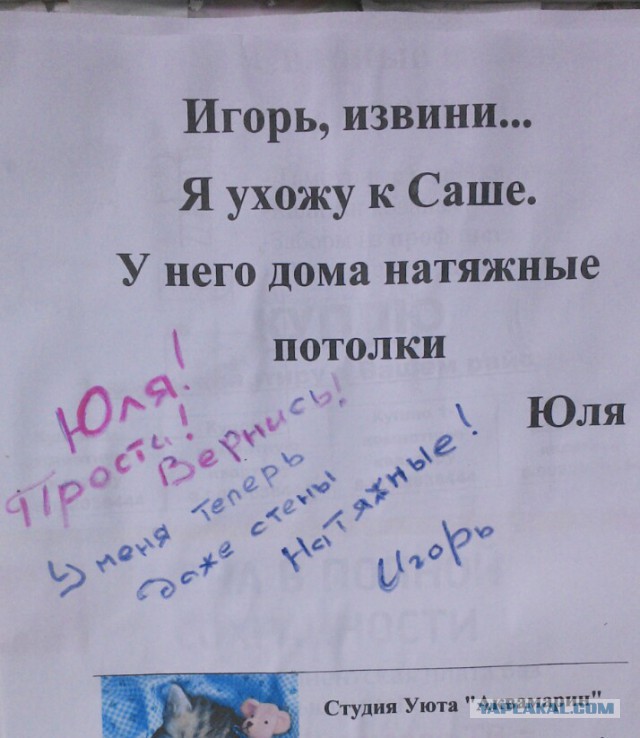 Игорь, извини...
Я ухожу к Саше.
У него дома натяжные
потолки
Юля
Юля!
Прости!
Вернись!
У меня теперь
даже стены
натяжные!
Игорь
Студия Уюта "Аквамарин"
YAPLAKAL.COM